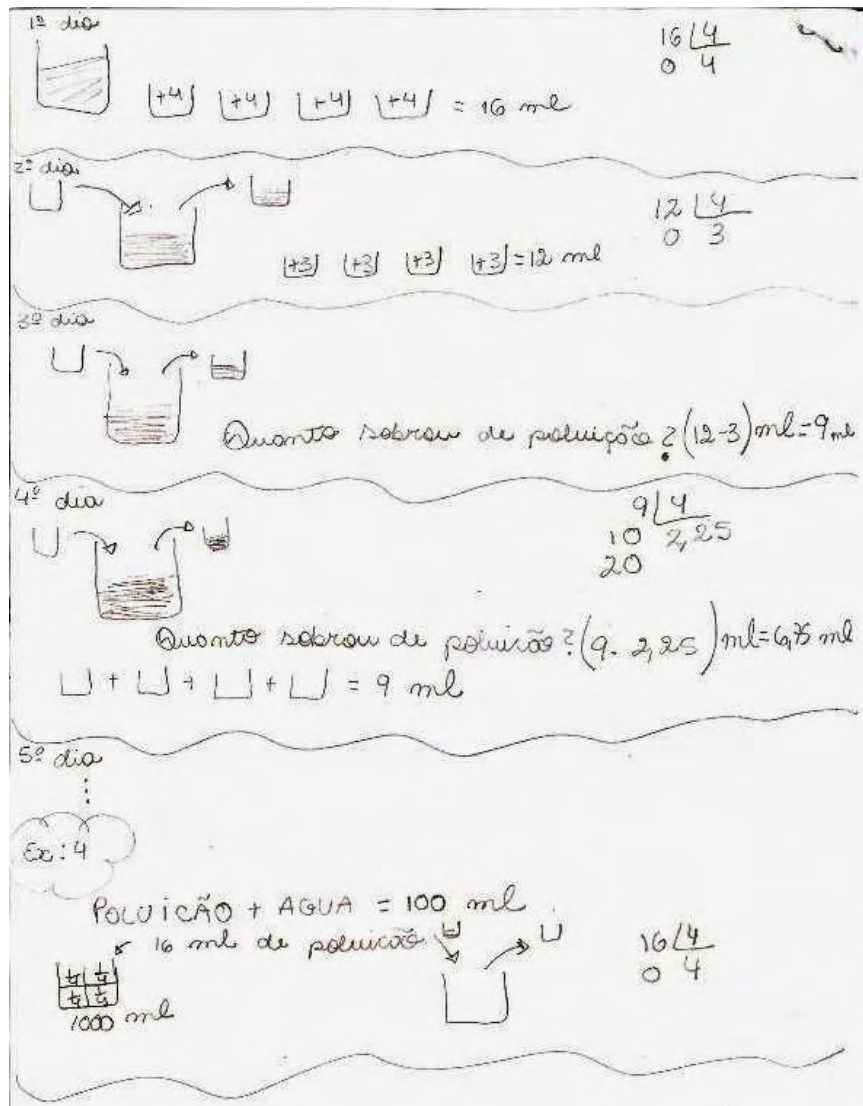 1º dia
16 | 4
0 4
+4 +4 +4 +4 = 16 ml
2º dia
12 | 4
0 3
+3 +3 +3 +3 = 12 ml
3º dia
Quanto sobrou de poluição? (12-3) ml = 9 ml
4º dia
9 | 4
10 2,25
20
Quanto sobrou de poluição? (9 - 2,25) ml = 6,75 ml
+ + + = 9 ml
5º dia
Ex: 4
POLUIÇÃO + AGUA = 100 ml
16 ml de poluição
16 | 4
0 4
1/4 1/4
1/4 1/4
1000 ml